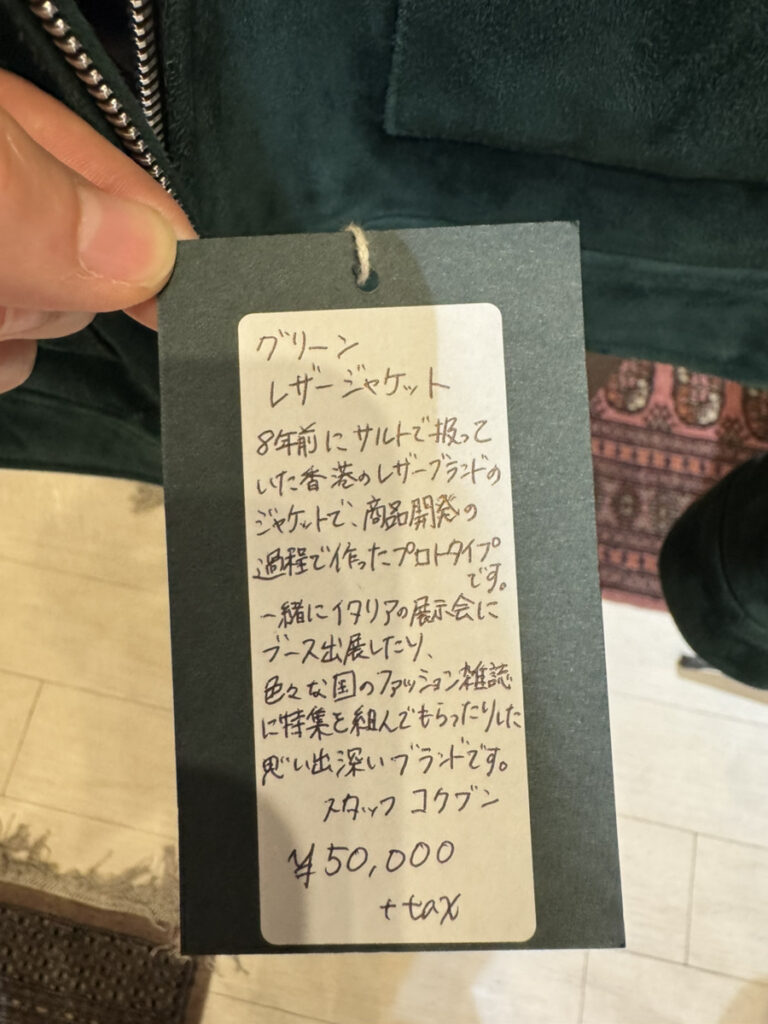 グリーン
レザージャケット
8年前にサルトで扱って
いた香港のレザーブランドの
ジャケットで、商品開発の
過程で作ったプロトタイプ
です。
一緒にイタリアの展示会に
ブース出展したり、
色々な国のファッション雑誌
に特集を組んでもらったりした
思い出深いブランドです。
スタッフ コクブン
¥50,000
+tax